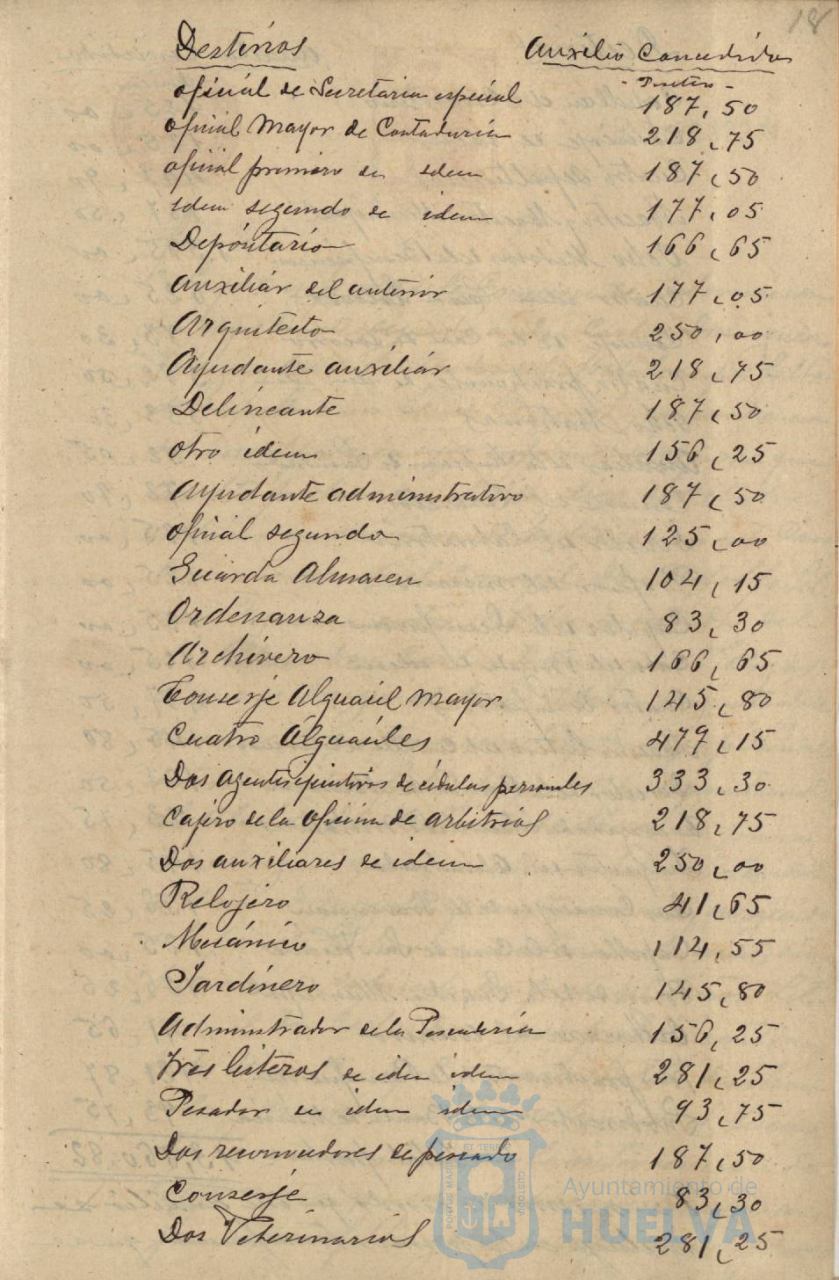 18
Destinos Auxilio Concedido
- Pesetas -
oficial de Secretaria especial 187,50
oficial Mayor de Contaduria 218,75
oficial primero de idem 187,50
idem segundo de idem 177,05
Depositario 166,65
Auxiliár del anterior 177,05
Arquitecto 250,00
Ayudante auxiliár 218,75
Delineante 187,50
otro idem 156,25
Ayudante administrativo 187,50
oficial segundo 125,00
Guarda Almacen 104,15
Ordenanza 83,30
Archivero 166,65
Conserje Alguacil Mayor 145,80
Cuatro Alguaciles 479,15
Dos agentes ejecutivos de cédulas personales 333,30
Cajero de la oficina de arbitrios 218,75
Dos auxiliares de idem 250,00
Relojero 41,65
Mecánico 114,55
Jardinero 145,80
Administrador de la Pescaderia 156,25
tres listeros de idem idem 281,25
Pesador de idem idem 93,75
Dos reconocedores de pescado 187,50
Conserje 83,30
Dos Veterinarios 281,25
Ayuntamiento de
HUELVA